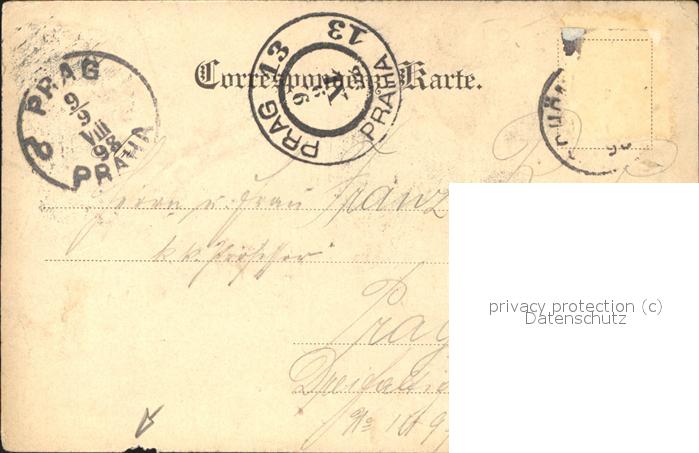 Correspondenz-Karte.
PRAG
9/9
VIII
98
PRAHA
2
PRAG 13
PRAHA 13
Herrn u. Frau Franz
k. k. Professor
Prag
privacy protection (c)
Datenschutz